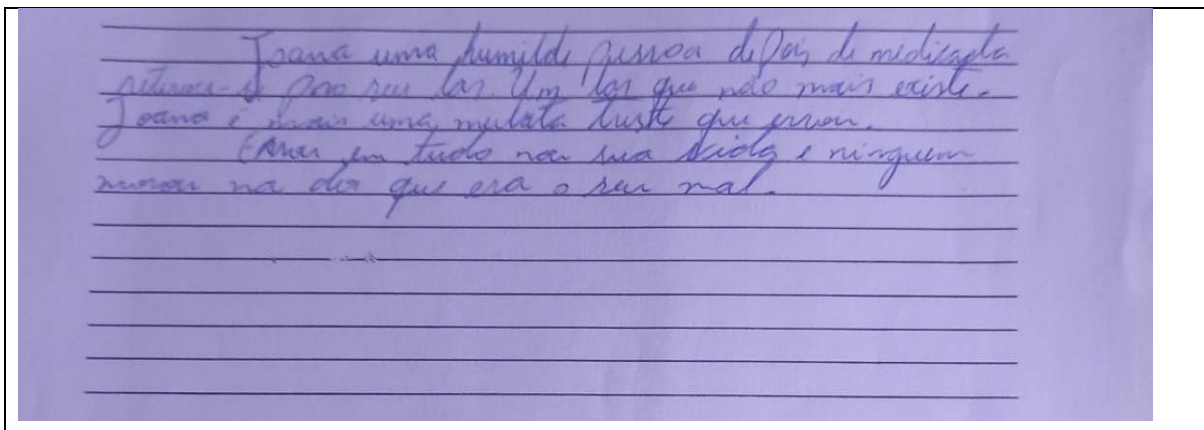 Joana uma humilde pessoa depois de medicada
retirou-se pro seu lar. Um lar que não mais existe.
Joana é mais uma, mulata triste que errou.
Errou em tudo na sua vida e ninguem
na dor que era o seu mal.